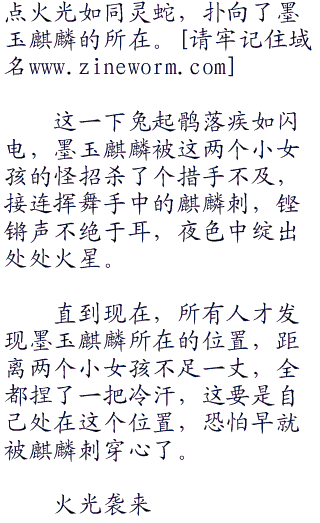 点火光如同灵蛇，扑向了墨
玉麒麟的所在。[请牢记住域
名www.zineworm.com]
这一下兔起鹘落疾如闪
电，墨玉麒麟被这两个小女
孩的怪招杀了个措手不及，
接连挥舞手中的麒麟刺，铿
锵声不绝于耳，夜色中绽出
处处火星。
直到现在，所有人才发
现墨玉麒麟所在的位置，距
离两个小女孩不足一丈，全
都捏了一把冷汗，这要是自
己处在这个位置，恐怕早就
被麒麟刺穿心了。
火光袭来